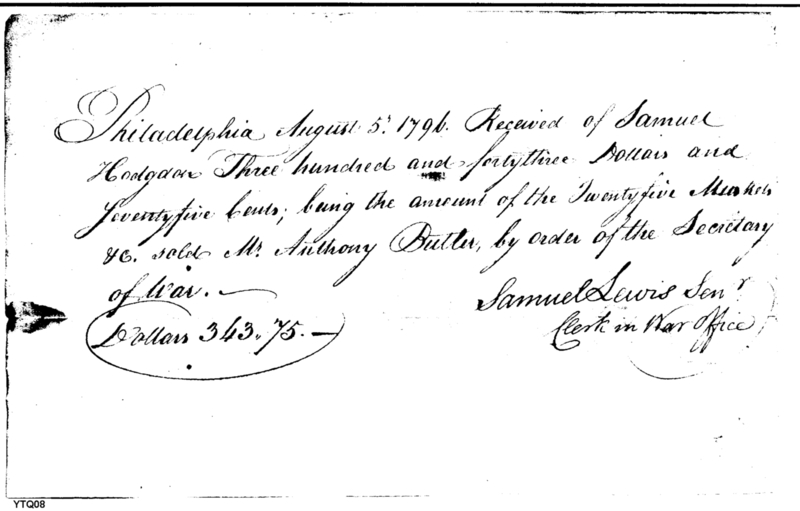 Philadelphia August 5th 1796. Received of Samuel
Hodgdon Three hundred and fortythree Dollars and
Seventyfive Cents; being the amount of the Twentyfive Muskets
&c. sold Mr. Anthony Butler, by order of the Secretary
of War. —
Samuel Lewis Senr
Clerk in War Office
Dollars 343.75. —
YTQ08